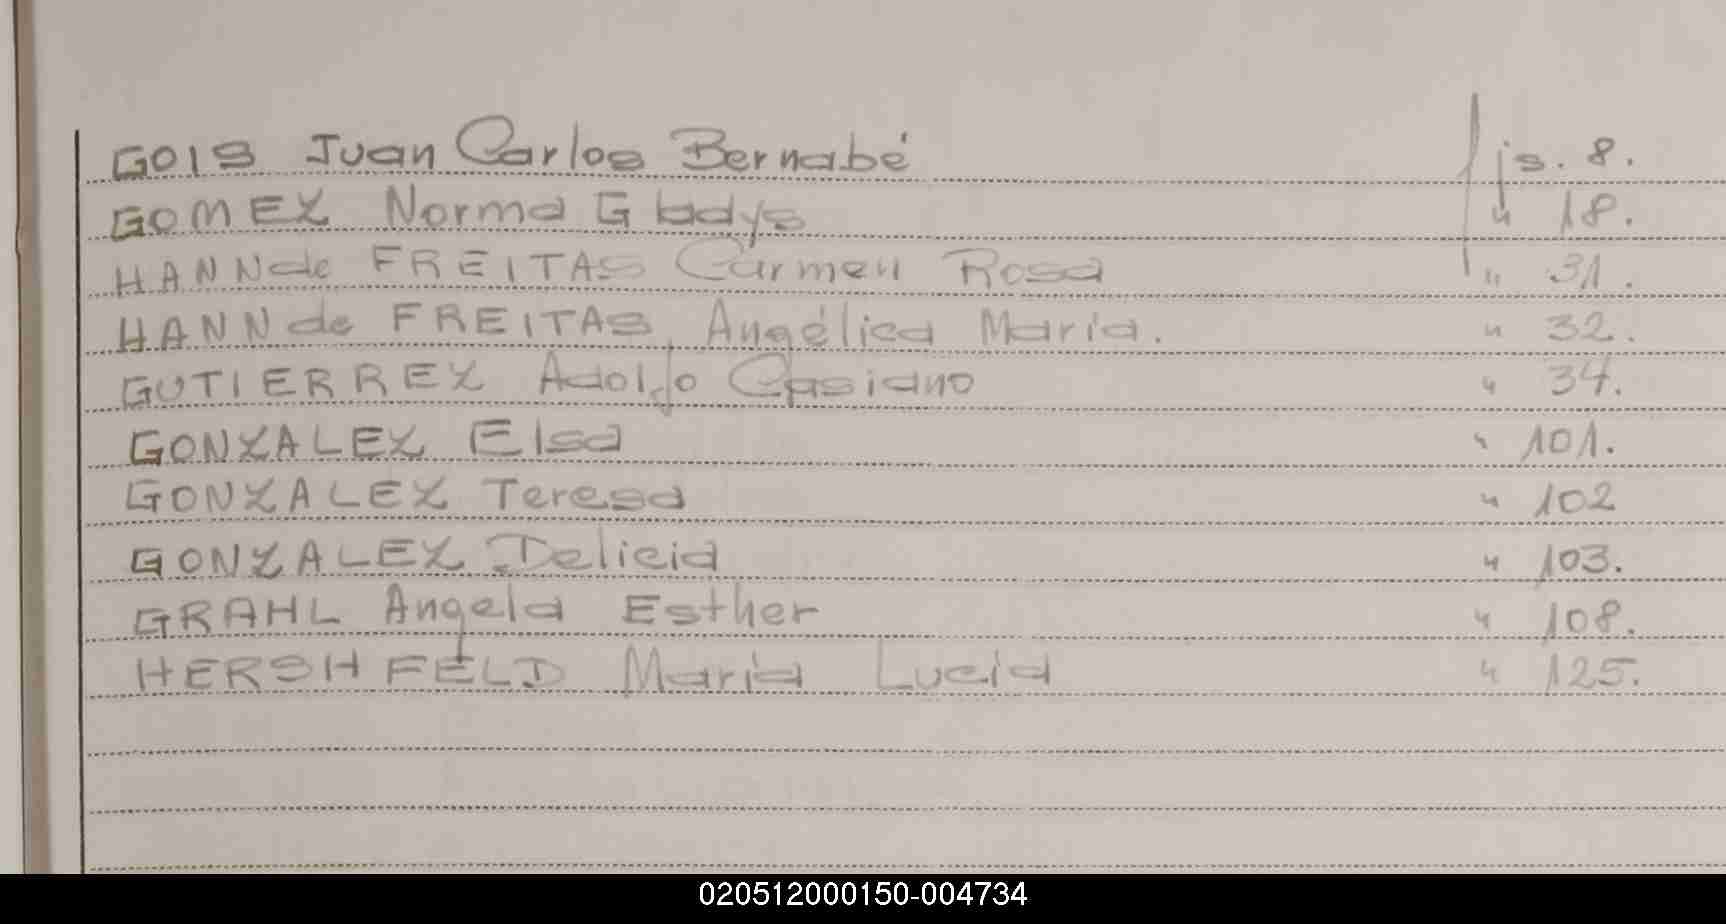 GOIS Juan Carlos Bernabé fjs. 8.
GOMEZ Norma Gladys " 18.
HANN de FREITAS Carmen Rosa " 31.
HANN de FREITAS Angélica Maria. " 32.
GUTIERREZ Adolfo Casiano " 34.
GONZALEZ Elsa " 101.
GONZALEZ Teresa " 102
GONZALEZ Delicia " 103.
GRAHL Angela Esther " 108.
HERSHFELD Maria Lucia " 125.
020512000150-004734